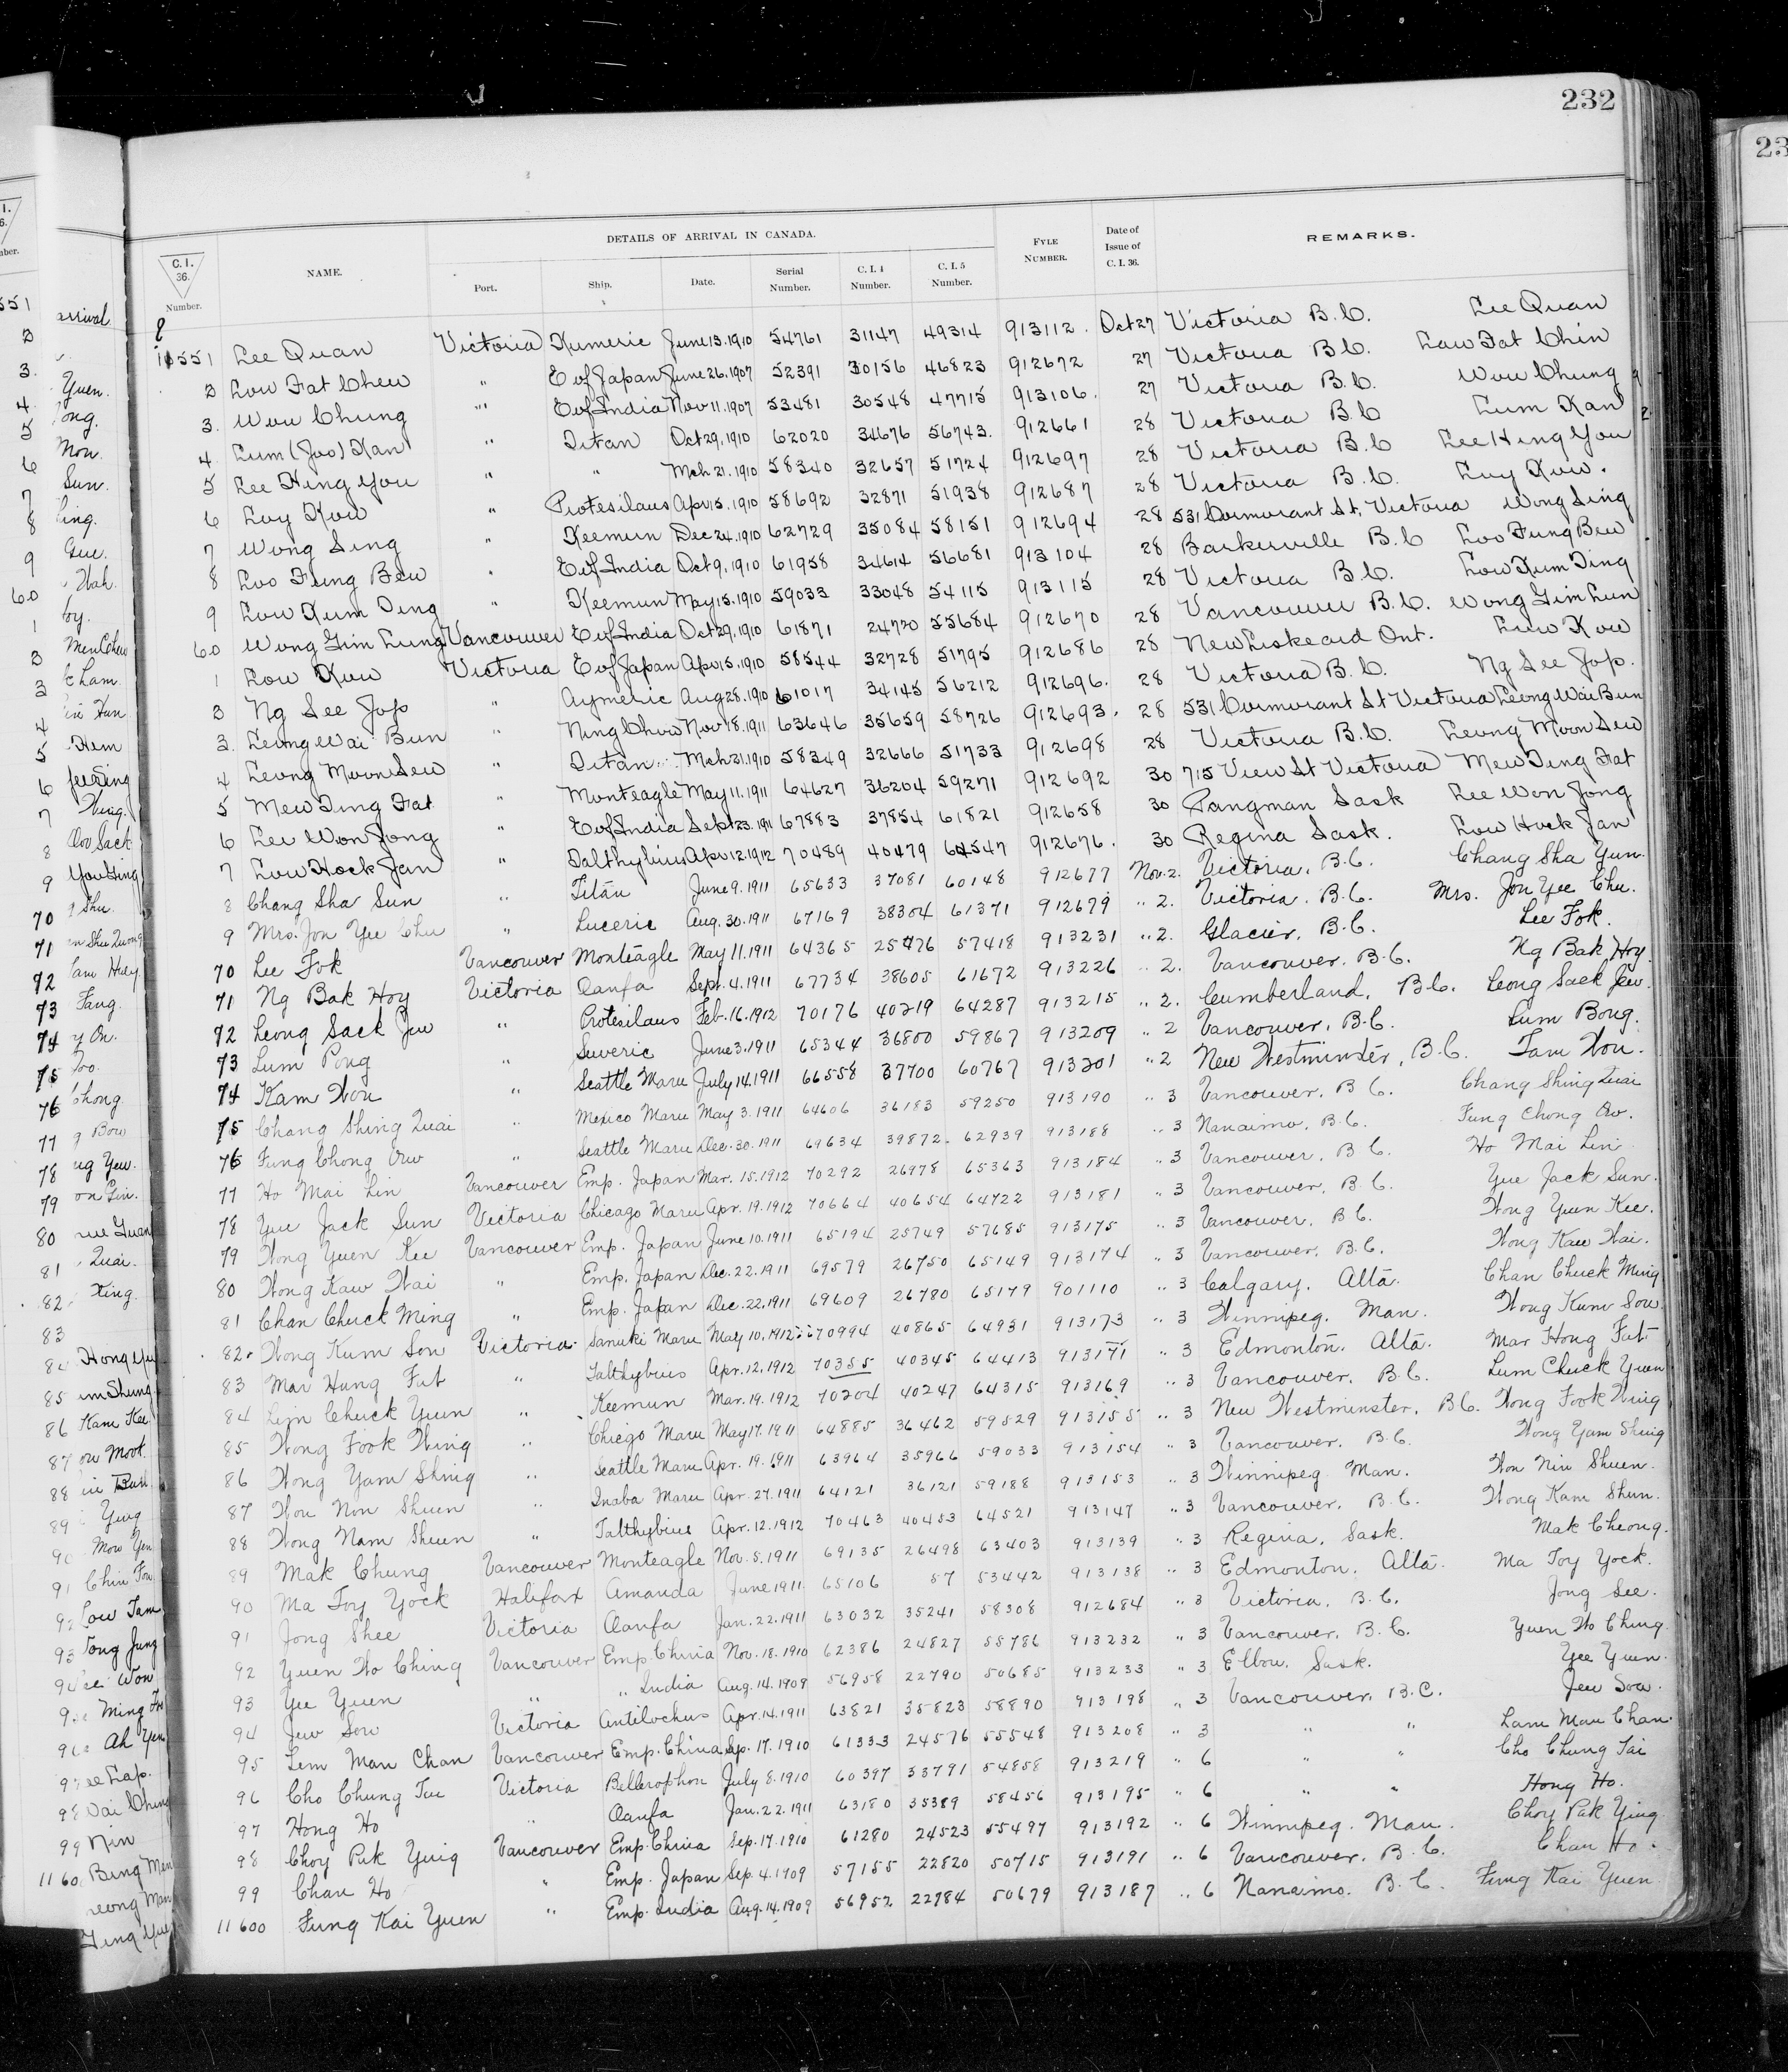 232
DETAILS OF ARRIVAL IN CANADA.
C. I. 36. Number. NAME. Port. Ship. Date. Serial Number. C. I. 4 Number. C. I. 5 Number. FYLE NUMBER. Date of Issue of C. I. 36. REMARKS.
11551 Lee Quan Victoria Kumeric June 13. 1910 54761 31147 49314 913112. Oct 27 Victoria B.C. Lee Quan
2 Low Fat Chew " E of Japan June 26. 1907 52391 30156 46823 912672 27 Victoria B.C. Law Fat Chin
3. Wou Chung " E of India Nov 11. 1907 53481 30548 47715 913106. 27 Victoria B.C. Wou Chung
4 Lum (Joo) Kan " Titan Oct 29, 1910 62020 34676 56743. 912661 28 Victoria B.C Lum Kan
5 Lee Hing You " " Mch 21. 1910 58340 32657 51724 912697 28 Victoria B.C Lee Hing You
6 Luy Kow " Protesilaus Apr 15. 1910 58692 32871 51938 912687 28 Victoria B.C. Luy Kow.
7 Wong Sing " Keemun Dec 24. 1910 62729 35084 58151 912694 28 531 Cormorant St, Victoria Wong Sing
8 Loo Fung Bew " E of India Oct 9, 1910 61958 34614 56681 913104 28 Barkerville B.C Loo Fung Bew
9 Low Kum Ting " Keemun May 15. 1910 59033 33048 54115 913115 28 Victoria B.C. Low Kum Ting
60 Wong Gim Lung Vancouver E of India Oct 29, 1910 61871 24720 55684 912670 28 Vancouver B.C. Wong Gim Lun
1 Low Kow Victoria E of Japan Apr 15. 1910 58544 32728 51795 912686 28 New Liskeard Ont. Low Kow
2 Ng See Jop " Aymeric Aug 28. 1910 61017 34145 56212 912696. 28 Victoria B.C. Ng See Jop.
3. Leong Wai Bun " Ning Chow Nov 18. 1911 63646 35659 58726 912693. 28 531 Cormorant St Victoria Leong Wai Bun
4 Leong Moon Sew " Titan Mch 21. 1910 58349 32666 51733 912698 28 Victoria B.C. Leong Moon Sew
5 Mew Ting Fat " Monteagle May 11. 1911 64627 36204 59271 912692 30 715 View St Victoria Mew Ting Fat
6 Lee Won Jong " E of India Sept 23. 1911 67883 37854 61821 912658 30 Pangman Sask Lee Won Jong
7 Low Hock Jan " Talthybius Apr 12. 1912 70489 40479 64547 912676. 30 Regina Sask. Low Hock Jan
8 Chang Sha Sun " Titan June 9. 1911 65633 37081 60148 912677 Nov. 2. Victoria. B.C. Chang Sha Yun.
9 Mrs. Jon Yee Chu " Luceric Aug. 30. 1911 67169 38304 61371 912679 " 2. Victoria. B.C. Mrs. Jon Yee Chu.
70 Lee Fok Vancouver Monteagle May 11. 1911 64365 25476 57418 913231 " 2. Glacier. B.C. Lee Fok.
71 Ng Bak Hoy Victoria Oanfa Sept. 4. 1911 67734 38605 61672 913226 " 2. Vancouver. B.C. Ng Bak Hoy.
72 Leong Sack Jew " Protesilaus Feb. 16. 1912 70176 40219 64287 913215 " 2. Cumberland. B.C. Leong Sack Jew.
73 Lum Pong " Suveric June 3. 1911 65344 36800 59867 913209 " 2 Vancouver. B.C. Lum Bong.
74 Kam Wou " Seattle Maru July 14. 1911 66558 37700 60767 913201 " 2 New Westminster, B.C. Tam Wou.
75 Chang Shing Quai " Mexico Maru May 3. 1911 64606 36183 59250 913190 " 3 Vancouver. B.C. Chang Shing Quai
76 Fung Chong Ow " Seattle Maru Dec. 30. 1911 69634 39872 62939 913188 " 3 Nanaimo. B.C. Fung Chong Ow.
77 Ho Mai Lin Vancouver Emp. Japan Mar. 15. 1912 70292 26978 65363 913184 " 3 Vancouver. B.C. Ho Mai Lin
78 Yue Jack Sun Victoria Chicago Maru Apr. 19. 1912 70664 40654 64722 913181 " 3 Vancouver. B.C. Yue Jack Sun.
79 Wong Yuen Kee Vancouver Emp. Japan June 10. 1911 65194 25749 57685 913175 " 3 Vancouver. B.C. Wong Yuen Kee.
80 Wong Kaw Wai " Emp. Japan Dec. 22. 1911 69579 26750 65149 913174 " 3 Vancouver. B.C. Wong Kaw Wai.
81 Chan Chuck Ming " Emp. Japan Dec. 22. 1911 69609 26780 65179 901110 " 3 Calgary. Alta. Chan Chuck Ming
82 Wong Kum Sou Victoria Sanuki Maru May 10. 1912 70994 40865 64931 913173 " 3 Winnipeg. Man. Wong Kum Sou.
83 Mar Hung Fat " Talthybius Apr. 12. 1912 70355 40345 64413 913171 " 3 Edmonton. Alta. Mar Hong Fat
84 Lim Chuck Yuen " Keemun Mar. 19. 1912 70204 40247 64315 913169 " 3 Vancouver. B.C. Lum Chuck Yuen
85 Wong Fook Wing " Chicgo Maru May 17. 1911 64885 36462 59529 913155 " 3 New Westminster. B.C. Wong Fook Wing
86 Wong Yam Shing " Seattle Maru Apr. 19. 1911 63964 35966 59033 913154 " 3 Vancouver. B.C. Wong Yam Shing
87 Wou Non Shuen " Inaba Maru Apr. 27. 1911 64121 36121 59188 913153 " 3 Winnipeg Man. Won Nin Shuen.
88 Wong Nam Shuen " Talthybius Apr. 12. 1912 70463 40453 64521 913147 " 3 Vancouver. B.C. Wong Kam Shun.
89 Mak Chung Vancouver Monteagle Nov. 5. 1911 69135 26498 63403 913139 " 3 Regina. Sask. Mak Cheong.
90 Ma Foy Yock Halifax Amanda June 1911 65106 57 53442 913138 " 3 Edmonton. Alta. Ma Toy Yock.
91 Jong Shee Victoria Oanfa Jan. 22. 1911 63032 35241 58308 912684 " 3 Victoria. B.C. Jong See.
92 Yuen Wo Ching Vancouver Emp. China Nov. 18. 1910 62386 24827 55786 913232 " 3 Vancouver. B.C. Yuen Wo Ching.
93 Yee Yuen " " India Aug. 14. 1909 56958 22790 50685 913233 " 3 Elbow. Sask. Yee Yuen.
94 Jew Sow Victoria Antilochus Apr. 14. 1911 63821 35823 58890 913198 " 3 Vancouver. B.C. Jew Sow.
95 Lem Man Chan Vancouver Emp. China Sep. 17. 1910 61333 24576 55548 913208 " 3 " " Lam Man Chan.
96 Cho Chung Tue Victoria Bellerophon July 8. 1910 60397 33791 54858 913219 " 6 " " Cho Chung Tai
97 Hong Ho " Oanfa Jan. 22. 1911 63180 35389 58456 913195 " 6 " " Hong Ho.
98 Choy Puk Ying Vancouver Emp. China Sep. 17. 1910 61280 24523 55497 913192 " 6 Winnipeg. Man. Choy Puk Ying.
99 Chan Ho " Emp. Japan Sep. 4. 1909 57155 22820 50715 913191 " 6 Vancouver. B.C. Chan Ho.
11600 Fung Kai Yuen " Emp. India Aug. 14. 1909 56952 22784 50679 913187 " 6 Nanaimo. B.C. Fung Kai Yuen